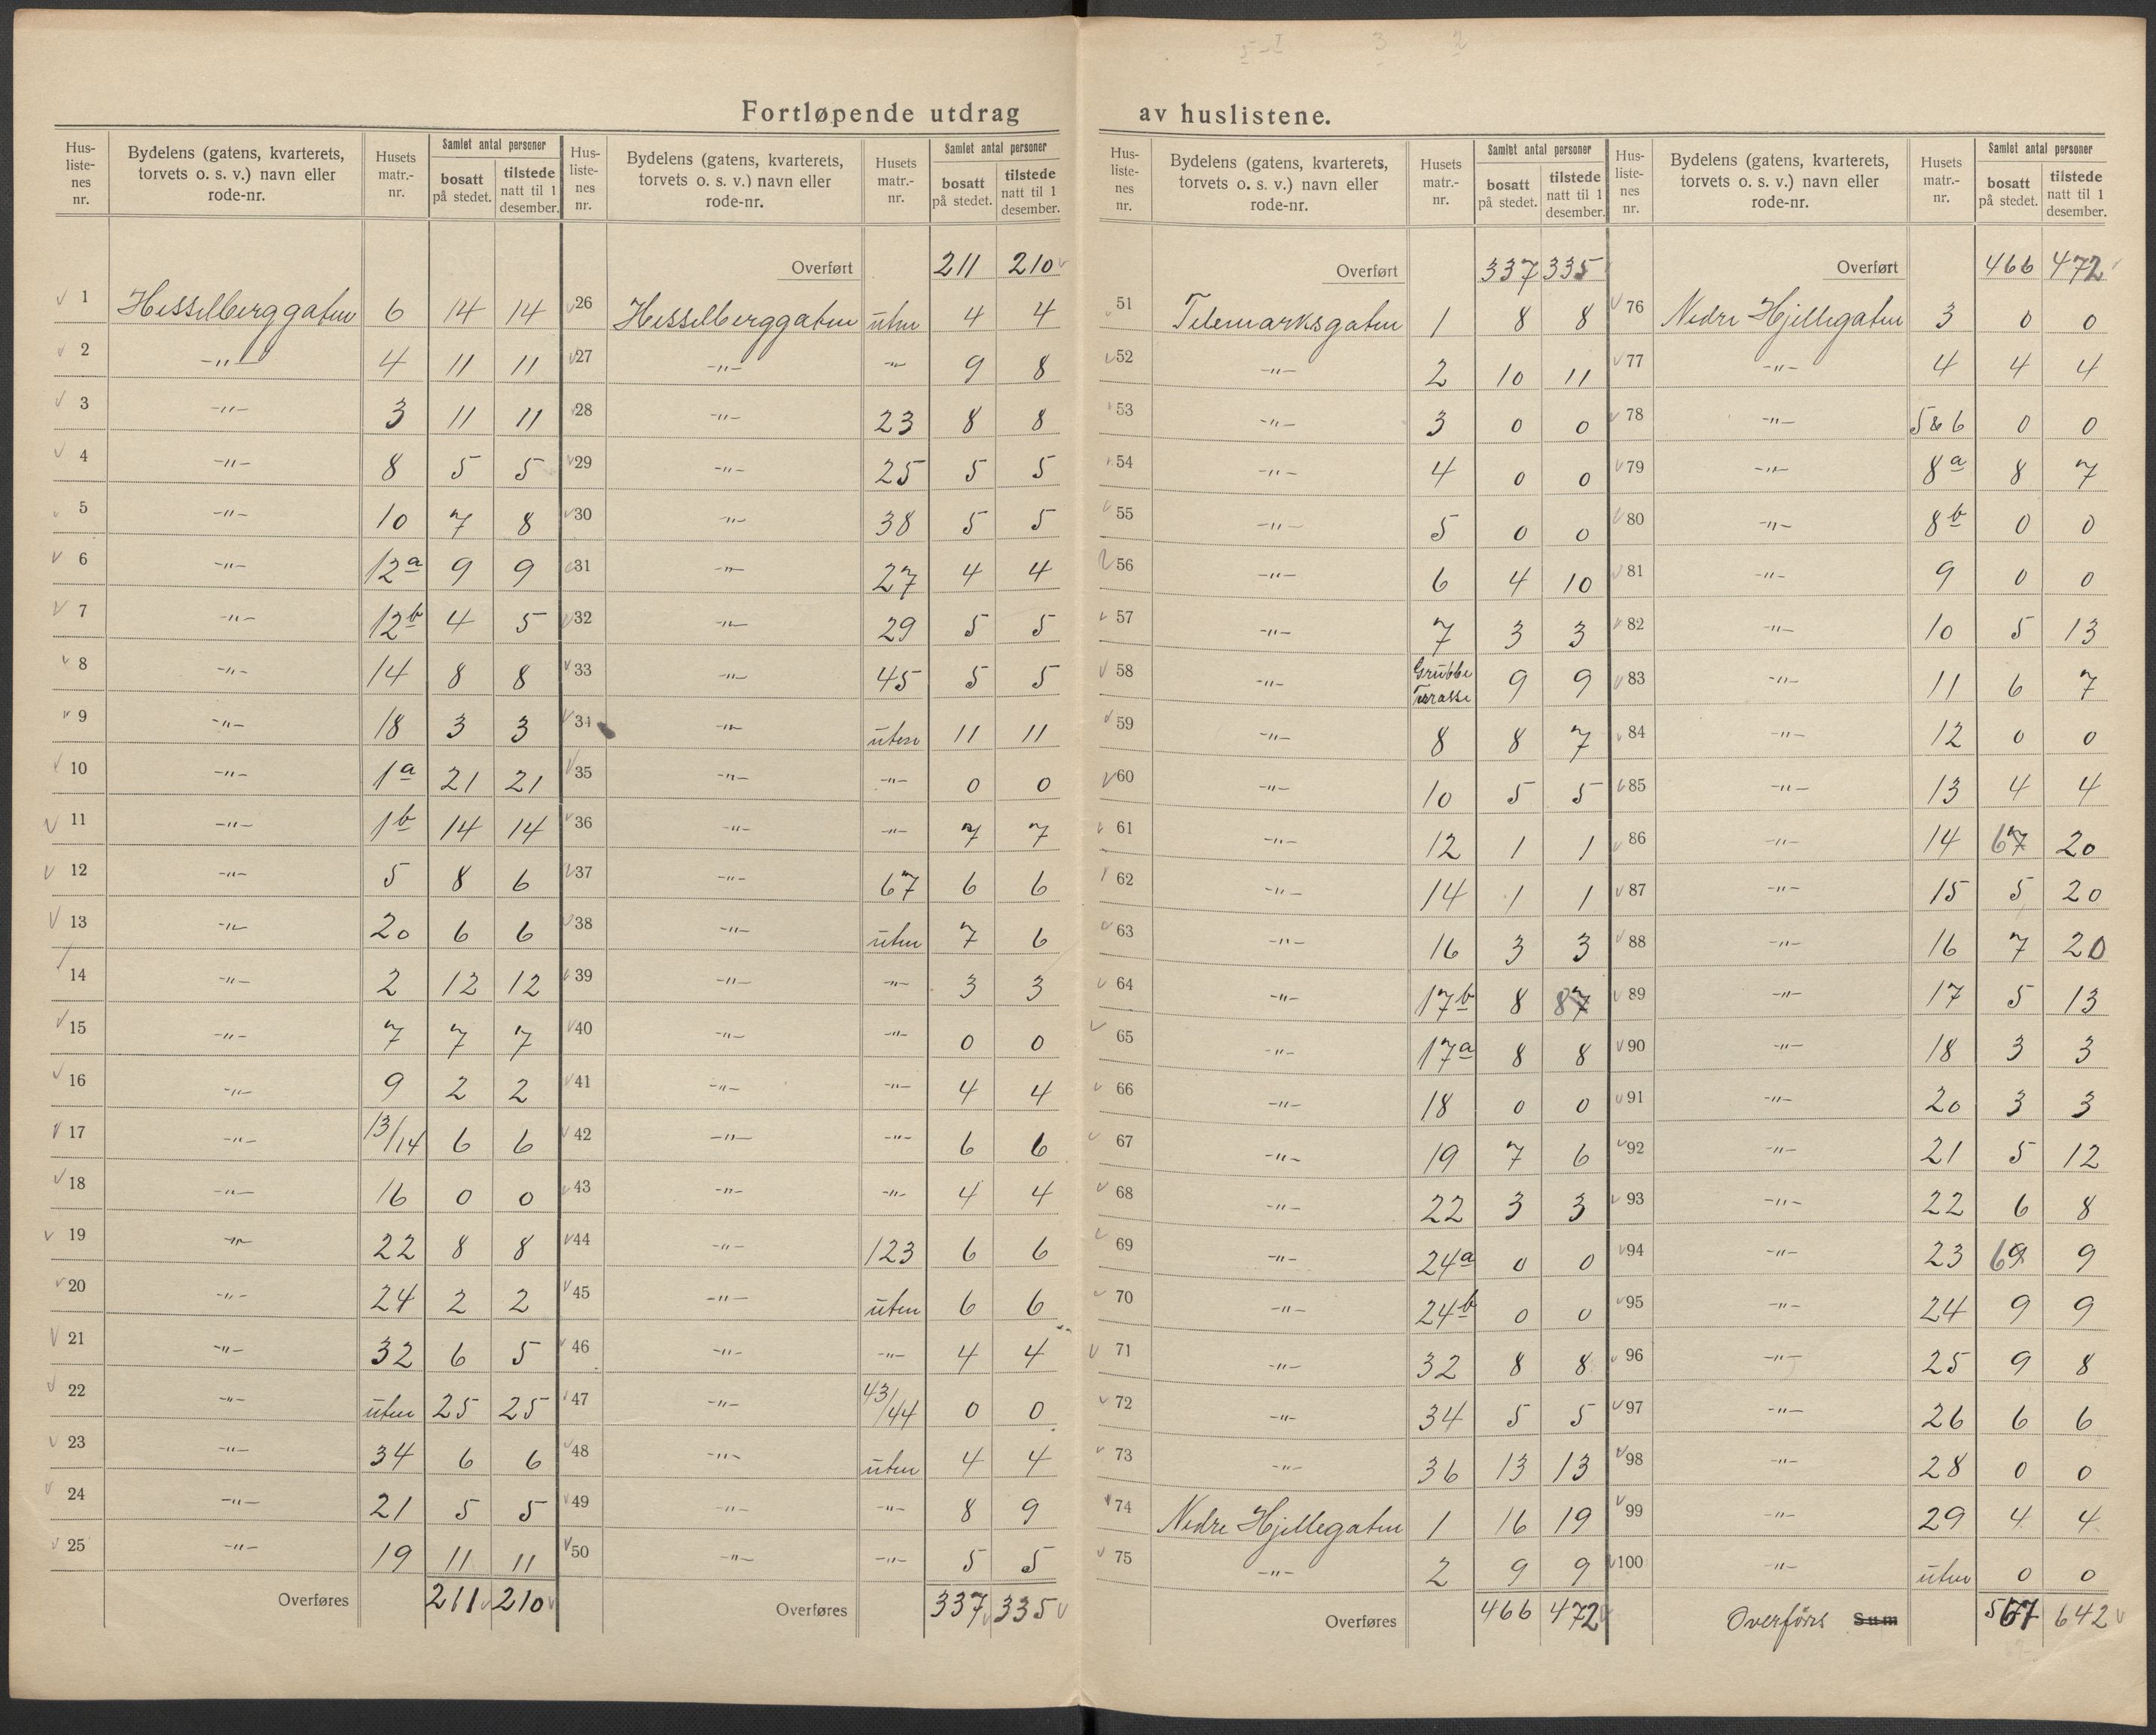 Fortløpende utdrag av huslistene.
Hus-listenes nr. | Bydelens (gatens, kvarterets, torvets o. s. v.) navn eller rode-nr. | Husets matr.-nr. | Samlet antal personer bosatt på stedet. | tilstede natt til 1 desember.
1 Hesselberggaten 6 14 14
2 -"- 4 11 11
3 -"- 3 11 11
4 -"- 8 5 5
5 -"- 10 7 8
6 -"- 12a 9 9
7 -"- 12b 4 5
8 -"- 14 8 8
9 -"- 18 3 3
10 -"- 1a 21 21
11 -"- 1b 14 14
12 -"- 5 8 6
13 -"- 20 6 6
14 -"- 2 12 12
15 -"- 7 7 7
16 -"- 9 2 2
17 -"- 13/14 6 6
18 -"- 16 0 0
19 -"- 22 8 8
20 -"- 24 2 2
21 -"- 32 6 5
22 -"- uten 25 25
23 -"- 34 6 6
24 -"- 21 5 5
25 -"- 19 11 11
Overføres 211 210
Hus-listenes nr. | Bydelens (gatens, kvarterets, torvets o. s. v.) navn eller rode-nr. | Husets matr.-nr. | Samlet antal personer bosatt på stedet. | tilstede natt til 1 desember.
Overført 211 210
26 Hesselberggaten uten 4 4
27 -"- -"- 9 8
28 -"- 23 8 8
29 -"- 25 5 5
30 -"- 38 5 5
31 -"- 27 4 4
32 -"- 29 5 5
33 -"- 45 5 5
34 -"- uten 11 11
35 -"- -"- 0 0
36 -"- -"- 7 7
37 -"- 67 6 6
38 -"- uten 7 6
39 -"- -"- 3 3
40 -"- -"- 0 0
41 -"- -"- 4 4
42 -"- -"- 6 6
43 -"- -"- 4 4
44 -"- 123 6 6
45 -"- uten 6 6
46 -"- -"- 4 4
47 -"- 43/44 0 0
48 -"- uten 4 4
49 -"- -"- 8 9
50 -"- -"- 5 5
Overføres 337 335
5-I 3 2
Hus-listenes nr. | Bydelens (gatens, kvarterets, torvets o. s. v.) navn eller rode-nr. | Husets matr.-nr. | Samlet antal personer bosatt på stedet. | tilstede natt til 1 desember.
Overført 337 335
51 Telemarksgaten 1 8 8
52 -"- 2 10 11
53 -"- 3 0 0
54 -"- 4 0 0
55 -"- 5 0 0
56 -"- 6 4 10
57 -"- 7 3 3
58 -"- Grubbe Terasse 9 9
59 -"- 8 8 7
60 -"- 10 5 5
61 -"- 12 1 1
62 -"- 14 1 1
63 -"- 16 3 3
64 -"- 17b 8 87
65 -"- 17a 8 8
66 -"- 18 0 0
67 -"- 19 7 6
68 -"- 22 3 3
69 -"- 24a 0 0
70 -"- 24b 0 0
71 -"- 32 8 8
72 -"- 34 5 5
73 -"- 36 13 13
74 Nedre Hjellegaten 1 16 19
75 -"- 2 9 9
Overføres 466 472
Hus-listenes nr. | Bydelens (gatens, kvarterets, torvets o. s. v.) navn eller rode-nr. | Husets matr.-nr. | Samlet antal personer bosatt på stedet. | tilstede natt til 1 desember.
Overført 466 472
76 Nedre Hjellegaten 3 0 0
77 -"- 4 4 4
78 -"- 5 & 6 0 0
79 -"- 8a 8 7
80 -"- 8b 0 0
81 -"- 9 0 0
82 -"- 10 5 13
83 -"- 11 6 7
84 -"- 12 0 0
85 -"- 13 4 4
86 -"- 14 67 20
87 -"- 15 5 20
88 -"- 16 7 20
89 -"- 17 5 13
90 -"- 18 3 3
91 -"- 20 3 3
92 -"- 21 5 12
93 -"- 22 6 8
94 -"- 23 69 9
95 -"- 24 9 9
96 -"- 25 9 8
97 -"- 26 6 6
98 -"- 28 0 0
99 -"- 29 4 4
100 -"- uten 0 0
Overføres Sum 567 642